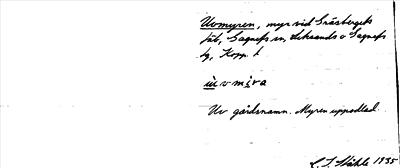 Uvmyren, myr vid Gråsbergets
fäb, Sagnefs sn, Leksands o Gagnefs
tg, Kopp. l
ùvmira
Uv gårdsnamn. Myren uppodlad.
L. G. Ståhle 1935